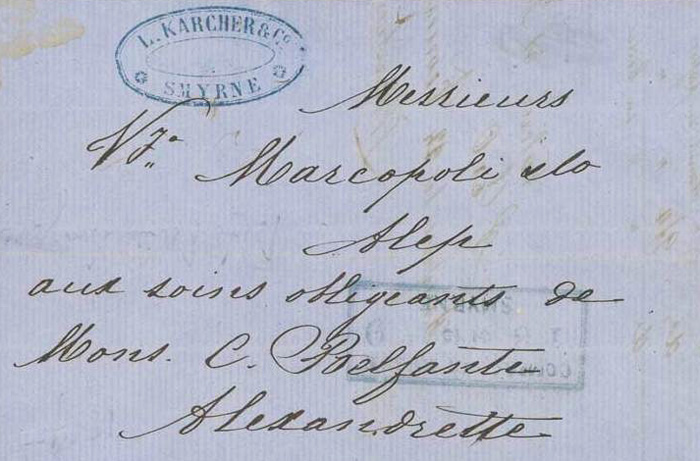 L. KARCHER & Co.
SMYRNE
Messieurs
Marcopoli & Co
Alep
aux soins obligeants de
Mons. C. Belfante
Alexandrette